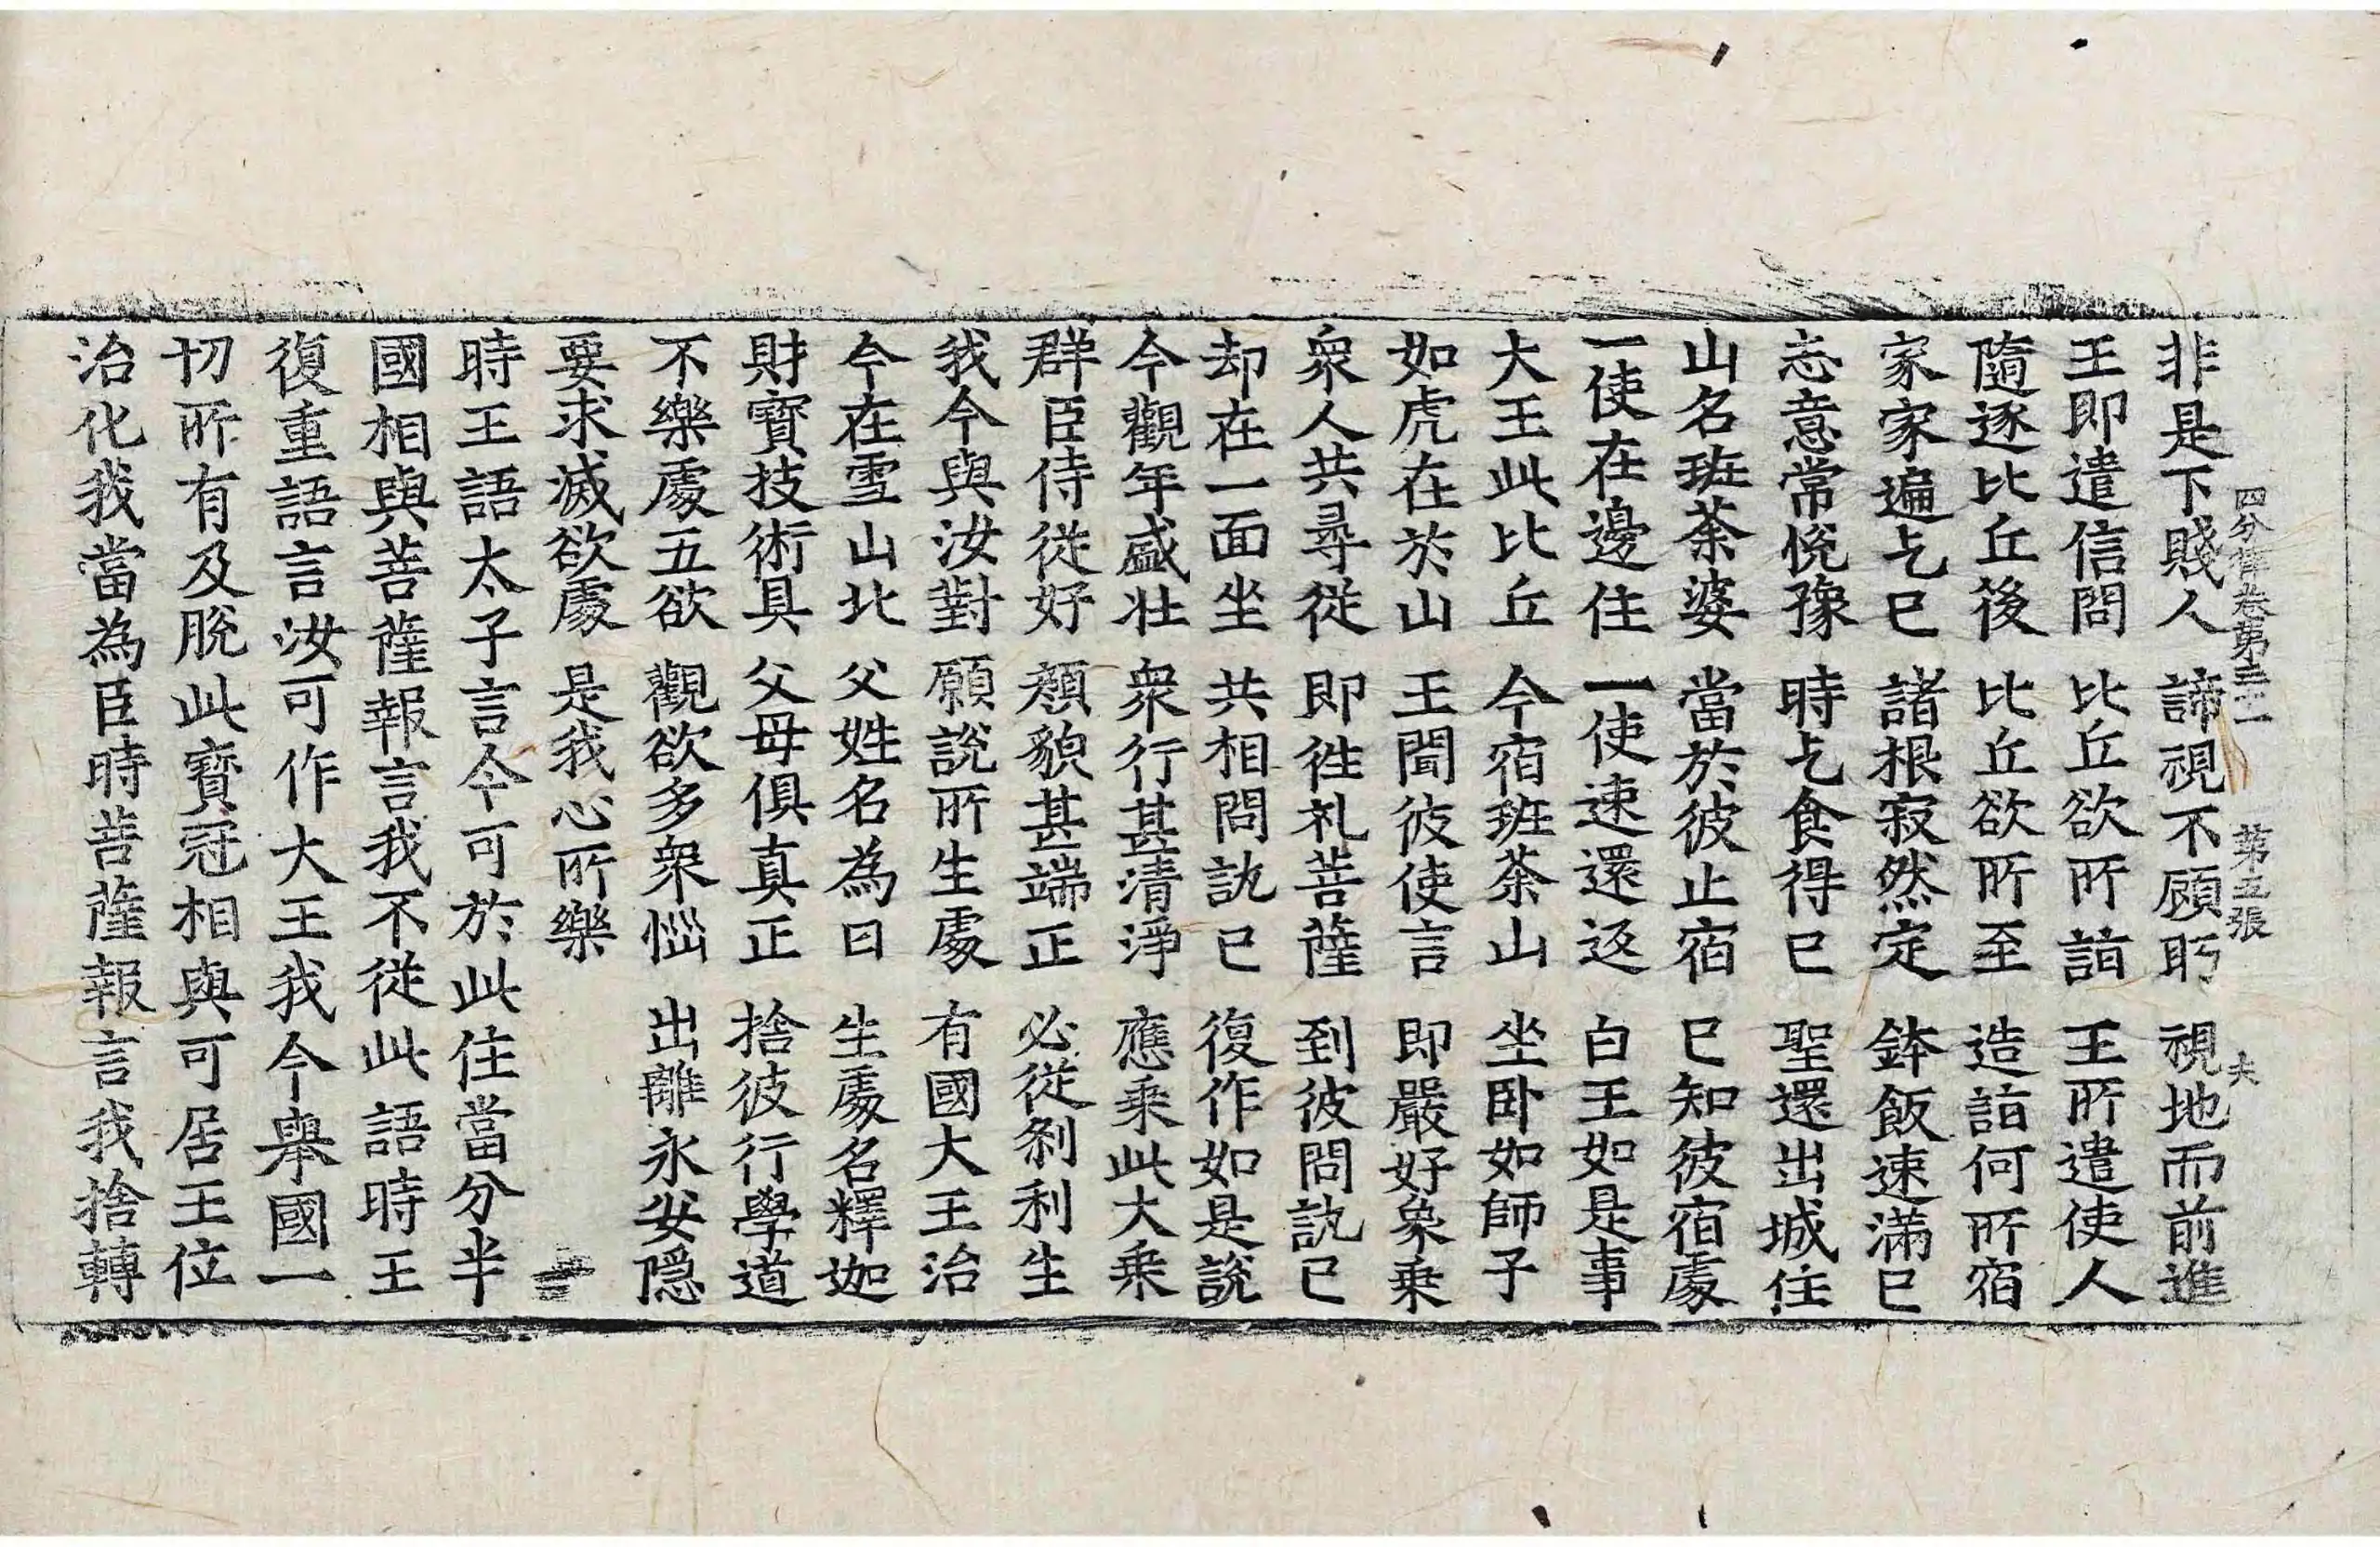 四分律卷第三十一　第五張　夫
非是下賤人　諦視不顧眄　視地而前進
王即遣信問　比丘欲所詣　王所遣使人
隨逐比丘後　比丘欲所至　造詣何所宿
家家遍乞已　諸根寂然定　鉢飯速滿已
志意常悅豫　時乞食得已　聖還出城住
山名班荼婆　當於彼止宿　已知彼宿處
一使在邊住　一使速還返　白王如是事
大王此比丘　今宿班荼山　坐卧如師子
如虎在於山　王聞彼使言　即嚴好象乗
衆人共尋從　即徃礼菩薩　到彼問訊已
却在一面坐　共相問訊已　復作如是說
今觀年盛壯　衆行甚清淨　應乗此大乗
群臣侍從好　顏貌甚端正　必從剎利生
我今與汝對　願說所生處　有國大王治
今在雪山北　父姓名為日　生處名釋迦
財寶技術具　父母俱真正　捨彼行學道
不樂處五欲　觀欲多衆惱　出離永安隱
要求滅欲處　是我心所樂
時王語太子言今可於此住當分半
國相與菩薩報言我不從此語時王
復重語言汝可作大王我今舉國一
切所有及脫此寶冠相與可居王位
治化我當為臣時菩薩報言我捨轉